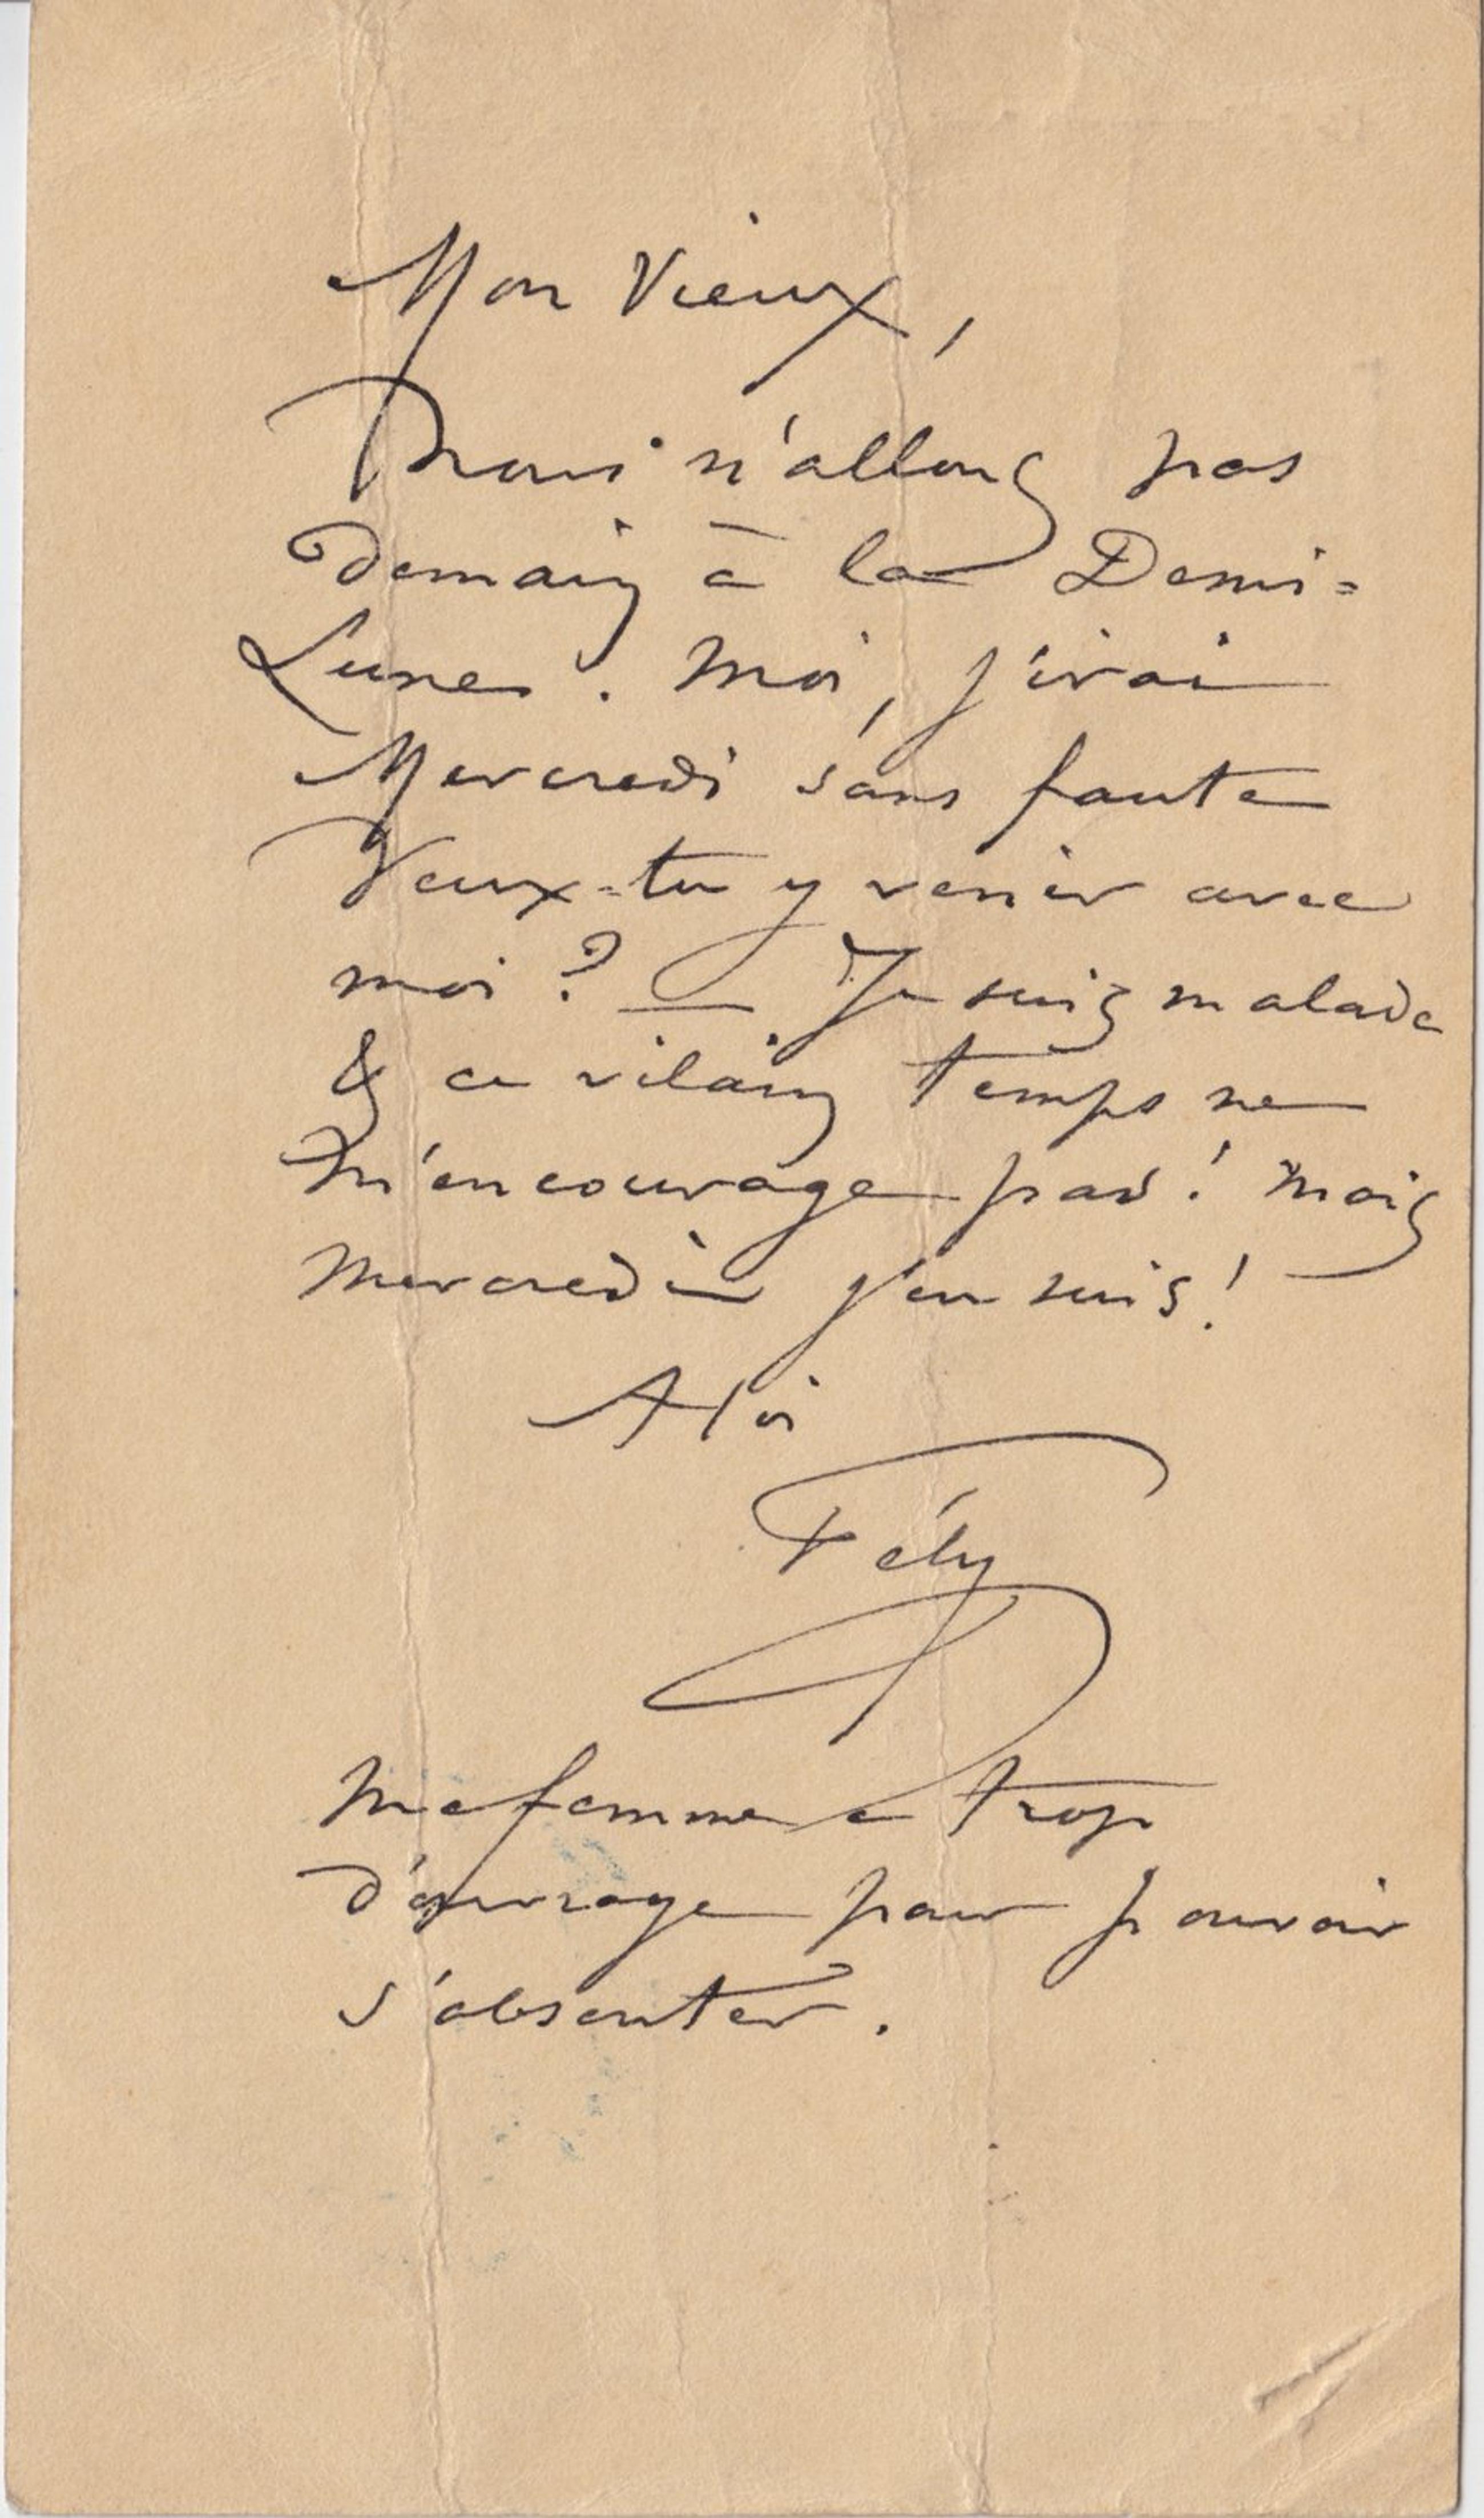 Mon Vieux,
nous n'allons pas
demain à la Demi=
Lune. Moi, j'irai
Mercredi sans faute
Veux=tu y venir avec
moi ? — Je suis malade
& ce vilain temps ne
m'encourage pas ! mais
mercredi j'en suis !
A toi
Fély
Ma femme a trop
d'ouvrage pour pouvoir
s'absenter.